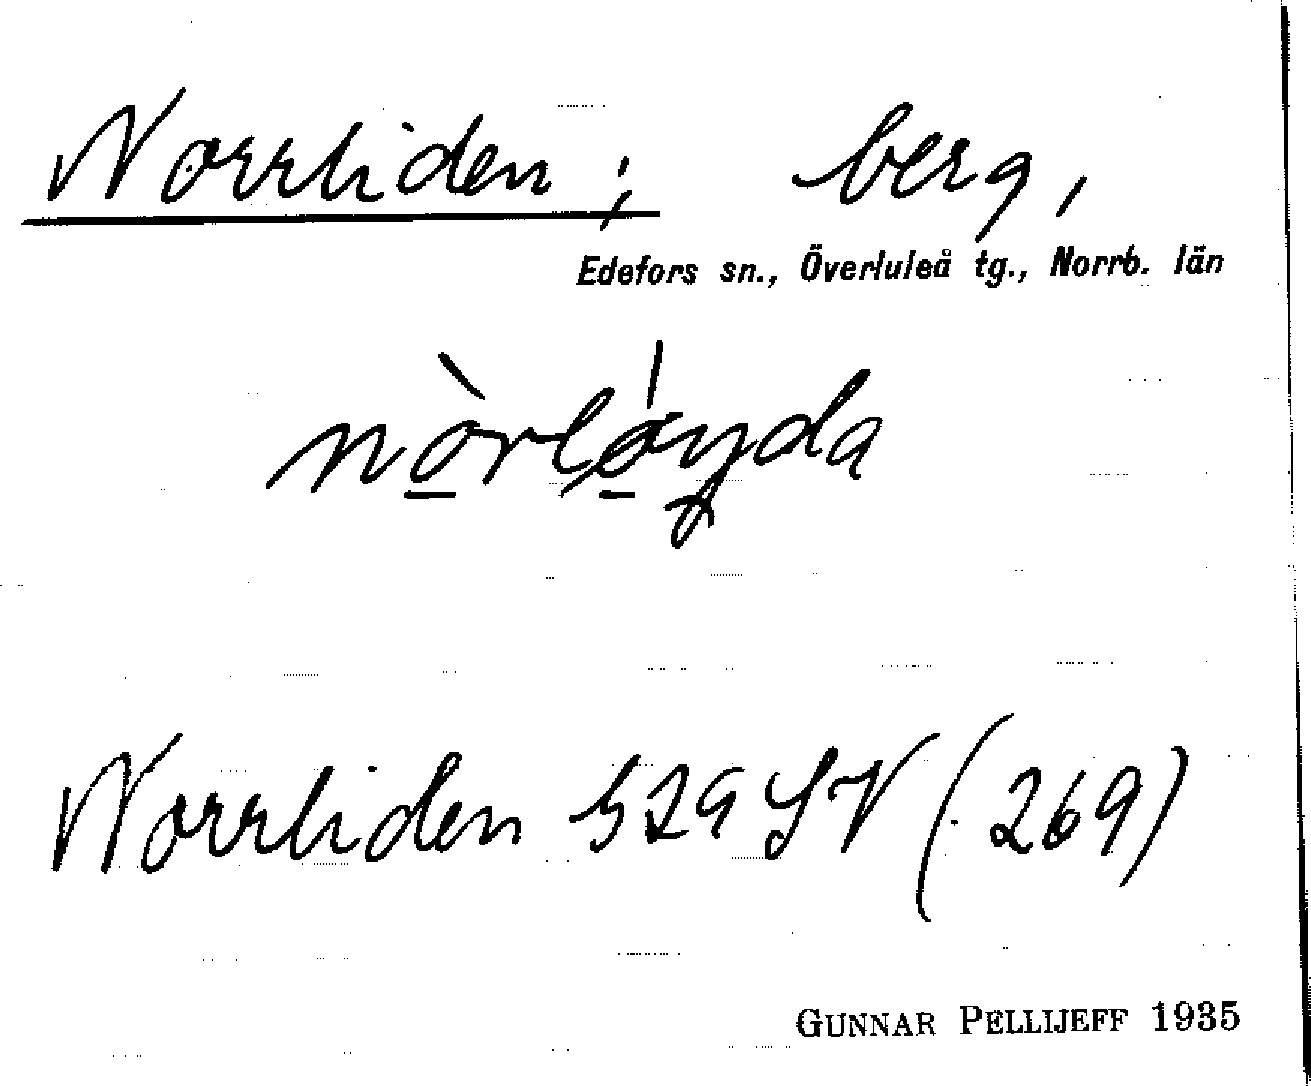 Norrliden; berg,
Edefors sn., Överluleå tg., Norrb. län
Norrliden 529 SV (269)
GUNNAR PELLIJEFF 1935